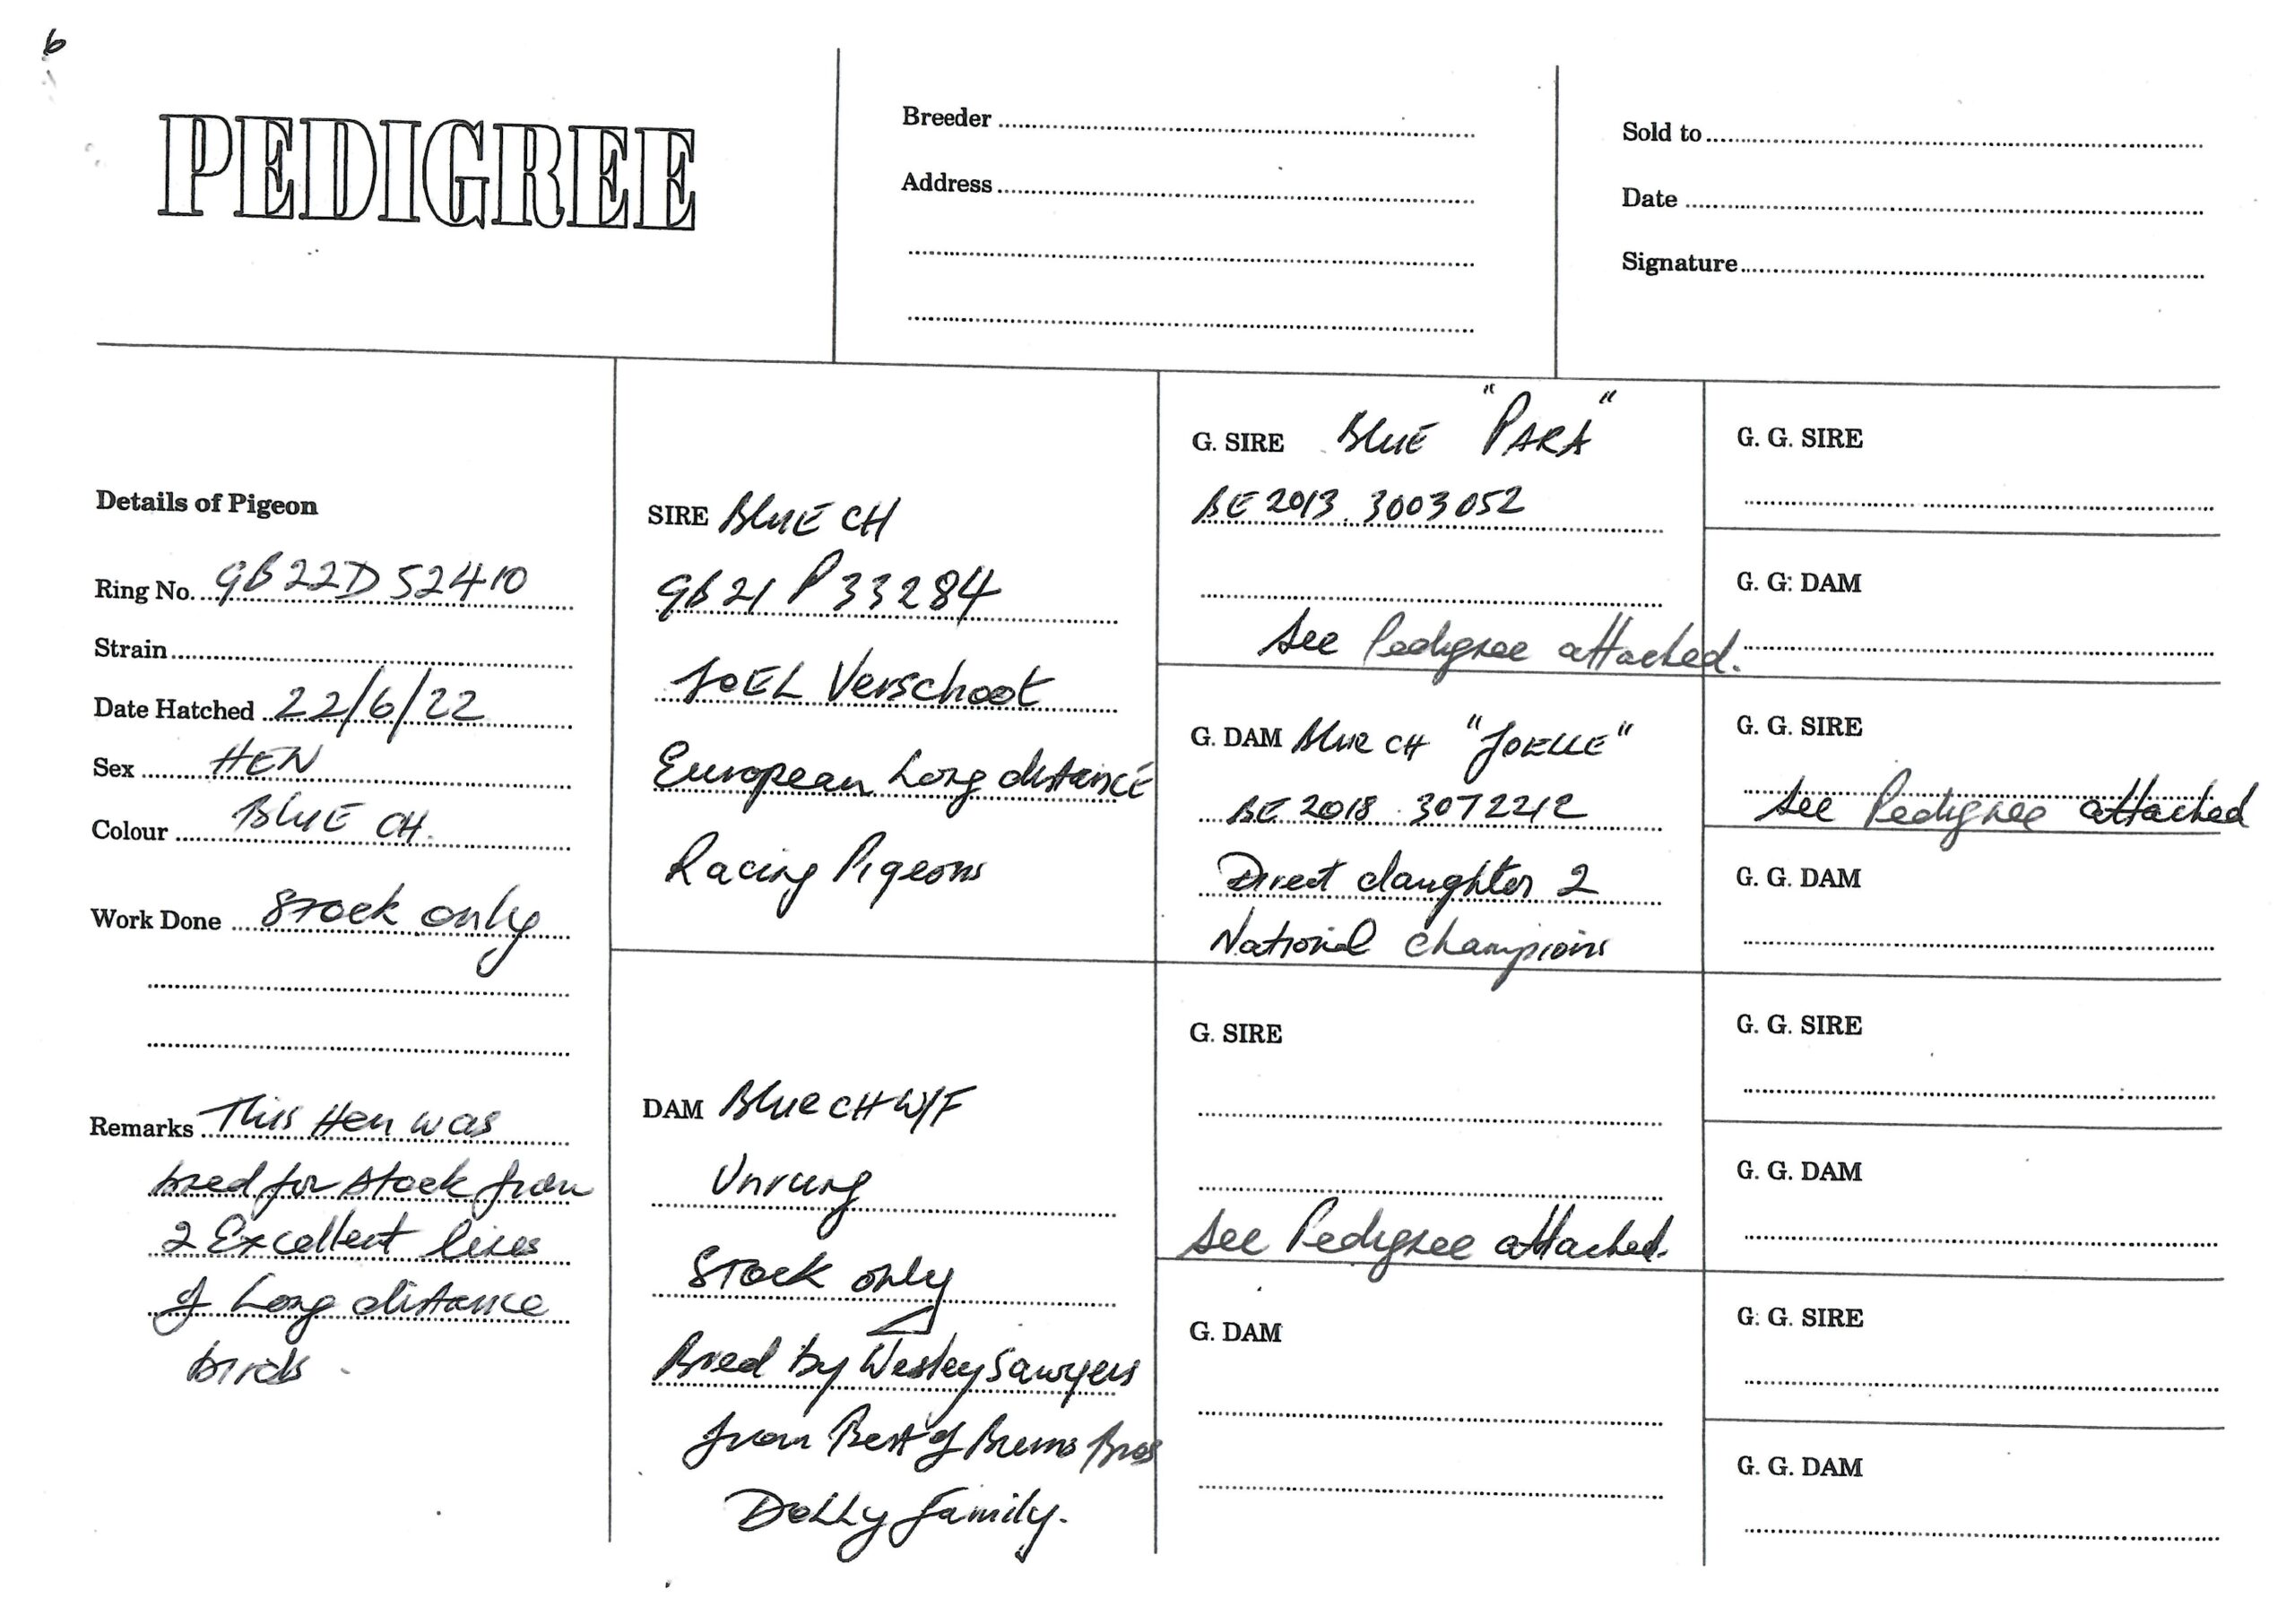 6
PEDIGREE
Breeder
Address
Sold to
Date
Signature
Details of Pigeon
Ring No. GB22D52410
Strain
Date Hatched 22/6/22
Sex HEN
Colour BLUE CH.
Work Done Stock only
Remarks This Hen was
bred for stock from
2 Excellent lines
of Long distance
birds.
SIRE BLUE CH
GB21 P33284
JOEL Verschoot
European Long distance
Racing Pigeons
DAM Blue CH W/F
Unrung
Stock only
Bred by Wesley Sawyers
from Best of Brems Bros
Dolly family.
G. SIRE BLUE "PARA"
BE 2013 . 3003052
See Pedigree attached.
G. DAM Blue CH "JOELLE"
BE 2018 . 3072212
Direct daughter 2
National Champions
G. SIRE
See Pedigree attached.
G. DAM
G. G. SIRE
G. G: DAM
G. G. SIRE
See Pedigree attached
G. G. DAM
G. G. SIRE
G. G. DAM
G. G. SIRE
G. G. DAM